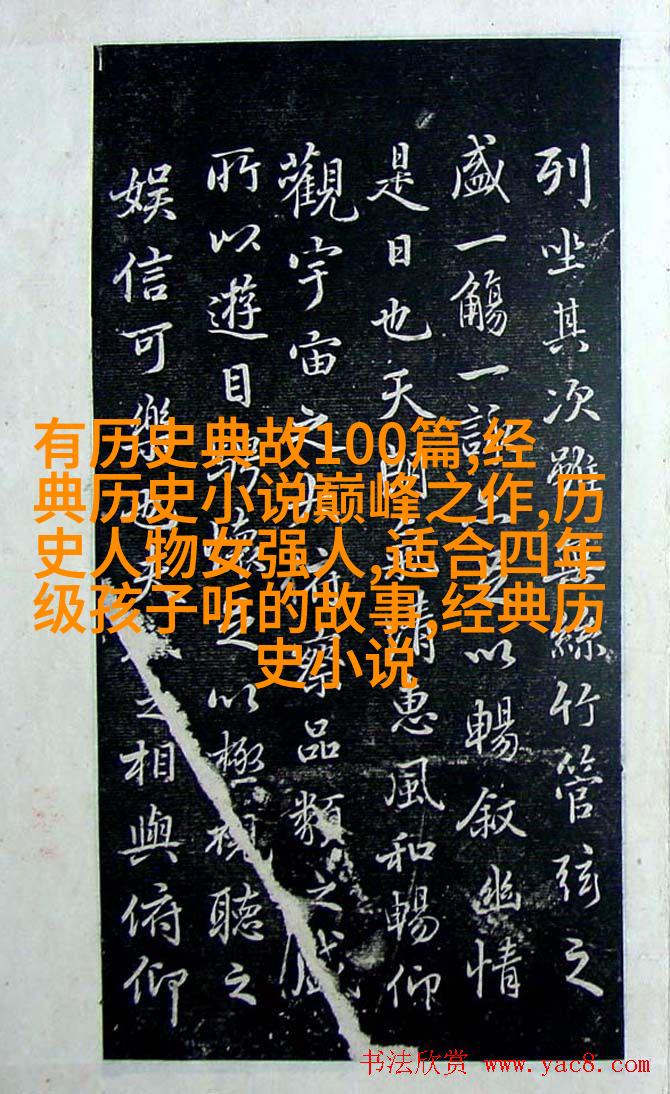 列坐其次雖無絲竹管弦之
盛一觴一詠亦足以暢叙幽情
是日也天朗氣清惠風和暢仰
觀宇宙之大俯察品類之盛
所以遊目騁懷足以極視聽之
娱信可樂也夫之相與俯仰
有历史典故100篇,经
典历史小说巅峰之作,历
史人物女强人,适合四年
级孩子听的故事,经典历
史小说
书法欣赏 www.yac8.com